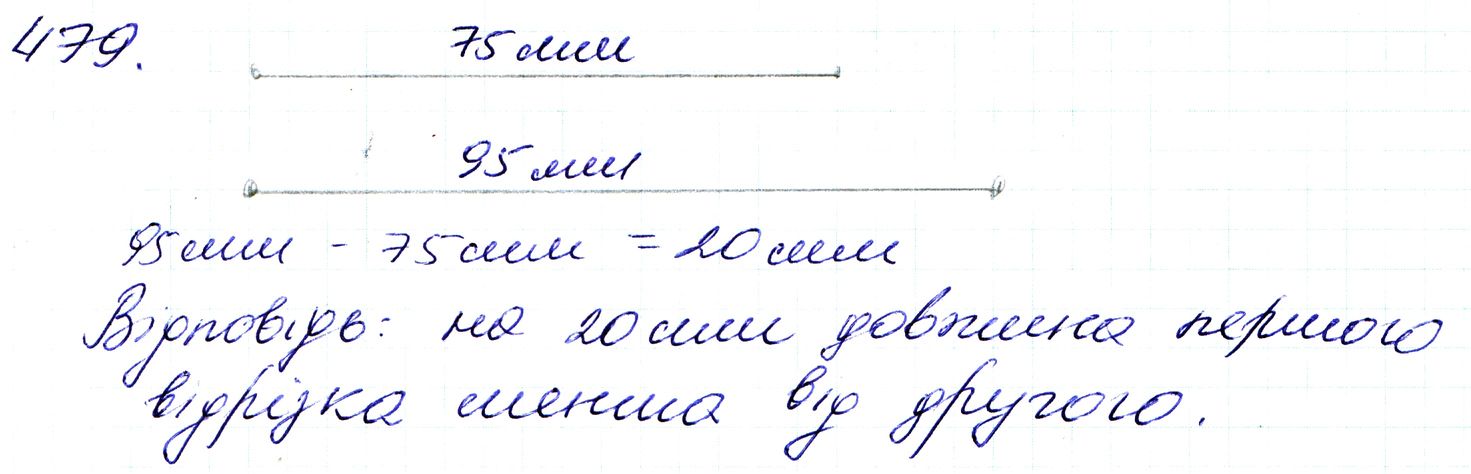 479.
75 мм
95 мм
95 мм - 75 мм = 20 мм
Відповідь: на 20 мм довжина першого
відрізка менша від другого.